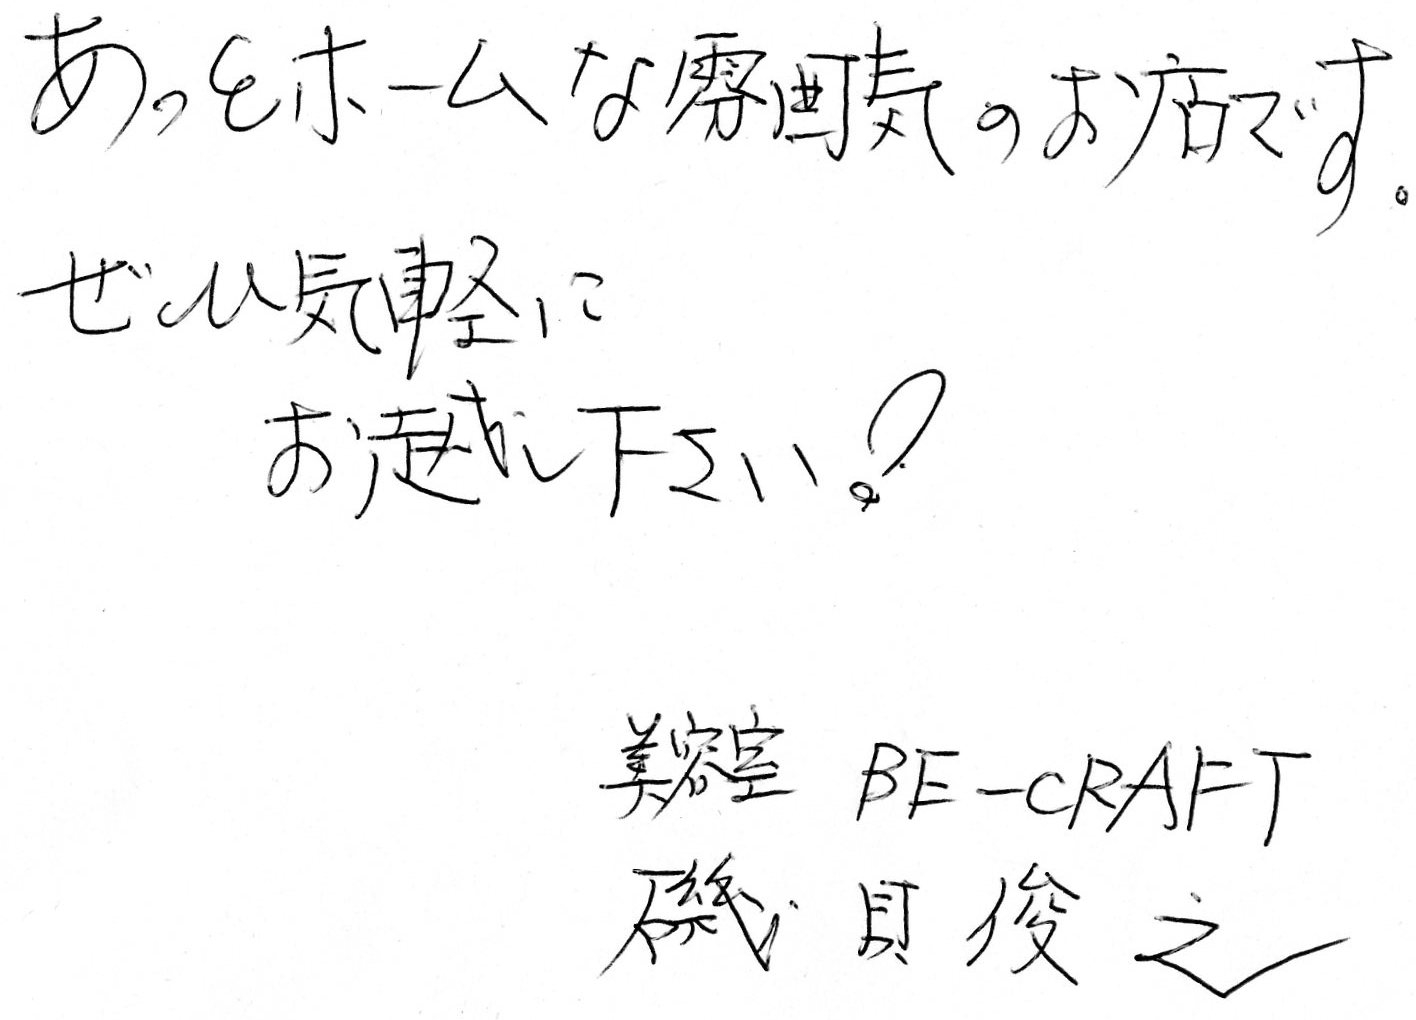 あっとホームな雰囲気のお店です。
ぜひ気軽に
お越し下さい!
美容室 BE-CRAFT
磯貝俊之